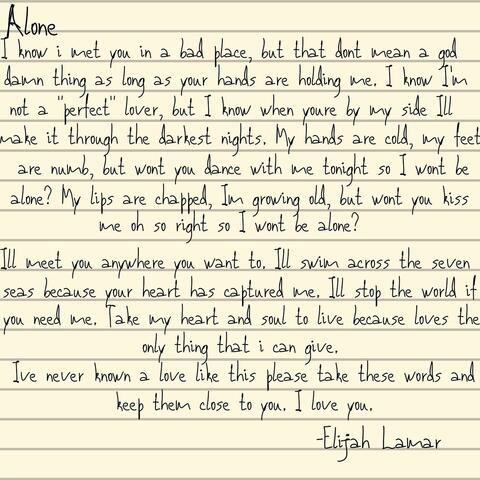 Alone
I know i met you in a bad place, but that dont mean a god
damn thing as long as your hands are holding me. I know I'm
not a "perfect" lover, but I know when youre by my side Ill
make it through the darkest nights. My hands are cold, my feet
are numb, but wont you dance with me tonight so I wont be
alone? My lips are chapped, Im growing old, but wont you kiss
me oh so right so I wont be alone?
Ill meet you anywhere you want to. Ill swim across the seven
seas because your heart has captured me. Ill stop the world if
you need me. Take my heart and soul to live because loves the
only thing that i can give.
Ive never known a love like this please take these words and
keep them close to you. I love you.
-Elijah Lamar